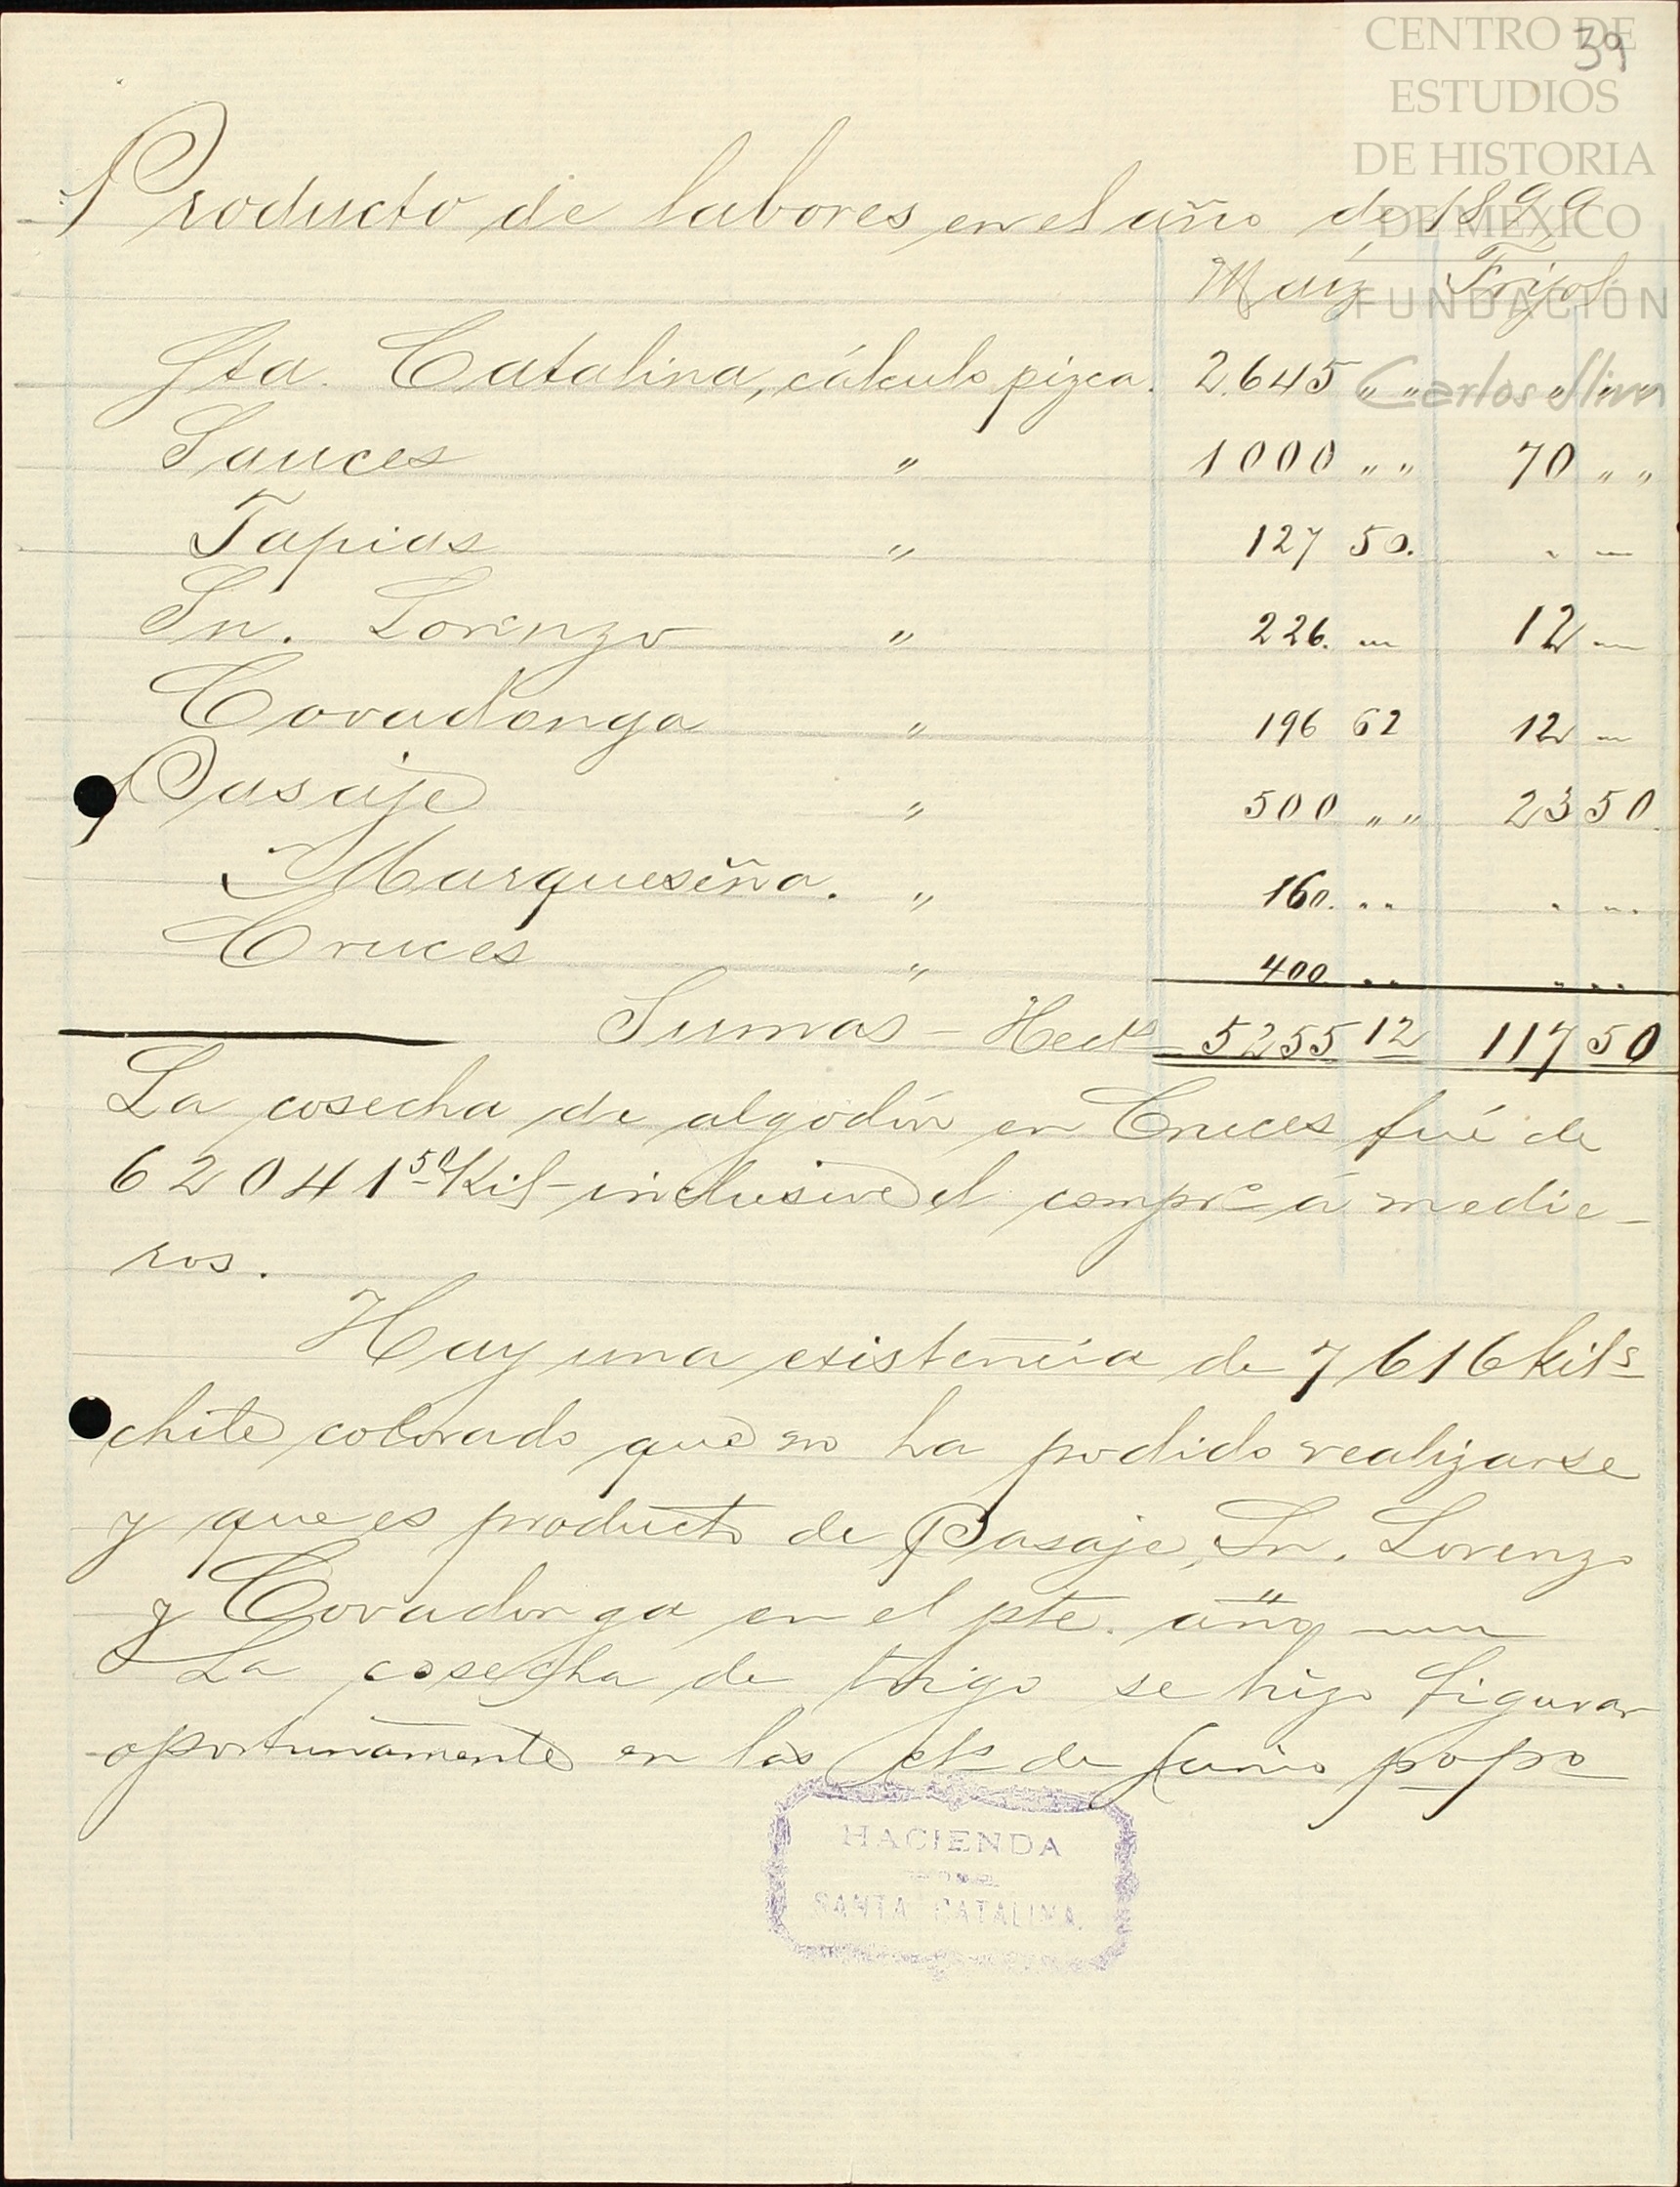 CENTRO DE
ESTUDIOS
DE HISTORIA
DE MEXICO
FUNDACIÓN
Carlos Slim
39
Producto de labores en el año de 1899
Maíz Frijol
Sta. Catalina, cálculo pizca. 2.645 „ „ „ „ „
Sauces „ 1000 „ „ 70 „ „
Tapias „ 127 50. „ —
Sn. Lorenzo „ 226. — 12 —
Covadonga „ 196 62 12 —
Pasaje „ 500 „ „ 23 50
Marqueseña. „ 160. „ „ „ „ „
Cruces „ 400. „ „ „ „ „
Sumas — Hects 5255 12 117 50
La cosecha de algodón en Cruces fué de
62041 50 Kil inclusive el compdo á medie-
ros.
Hay una existencia de 7616 kils
chile colorado que no ha podido realizarse
y que es producto de Pasaje, Sn. Lorenzo
y Covadonga en el pte. año
La cosecha de trigo se hizo figurar
oportunamente en las de Junio ppo
HACIENDA
SANTA CATALINA.